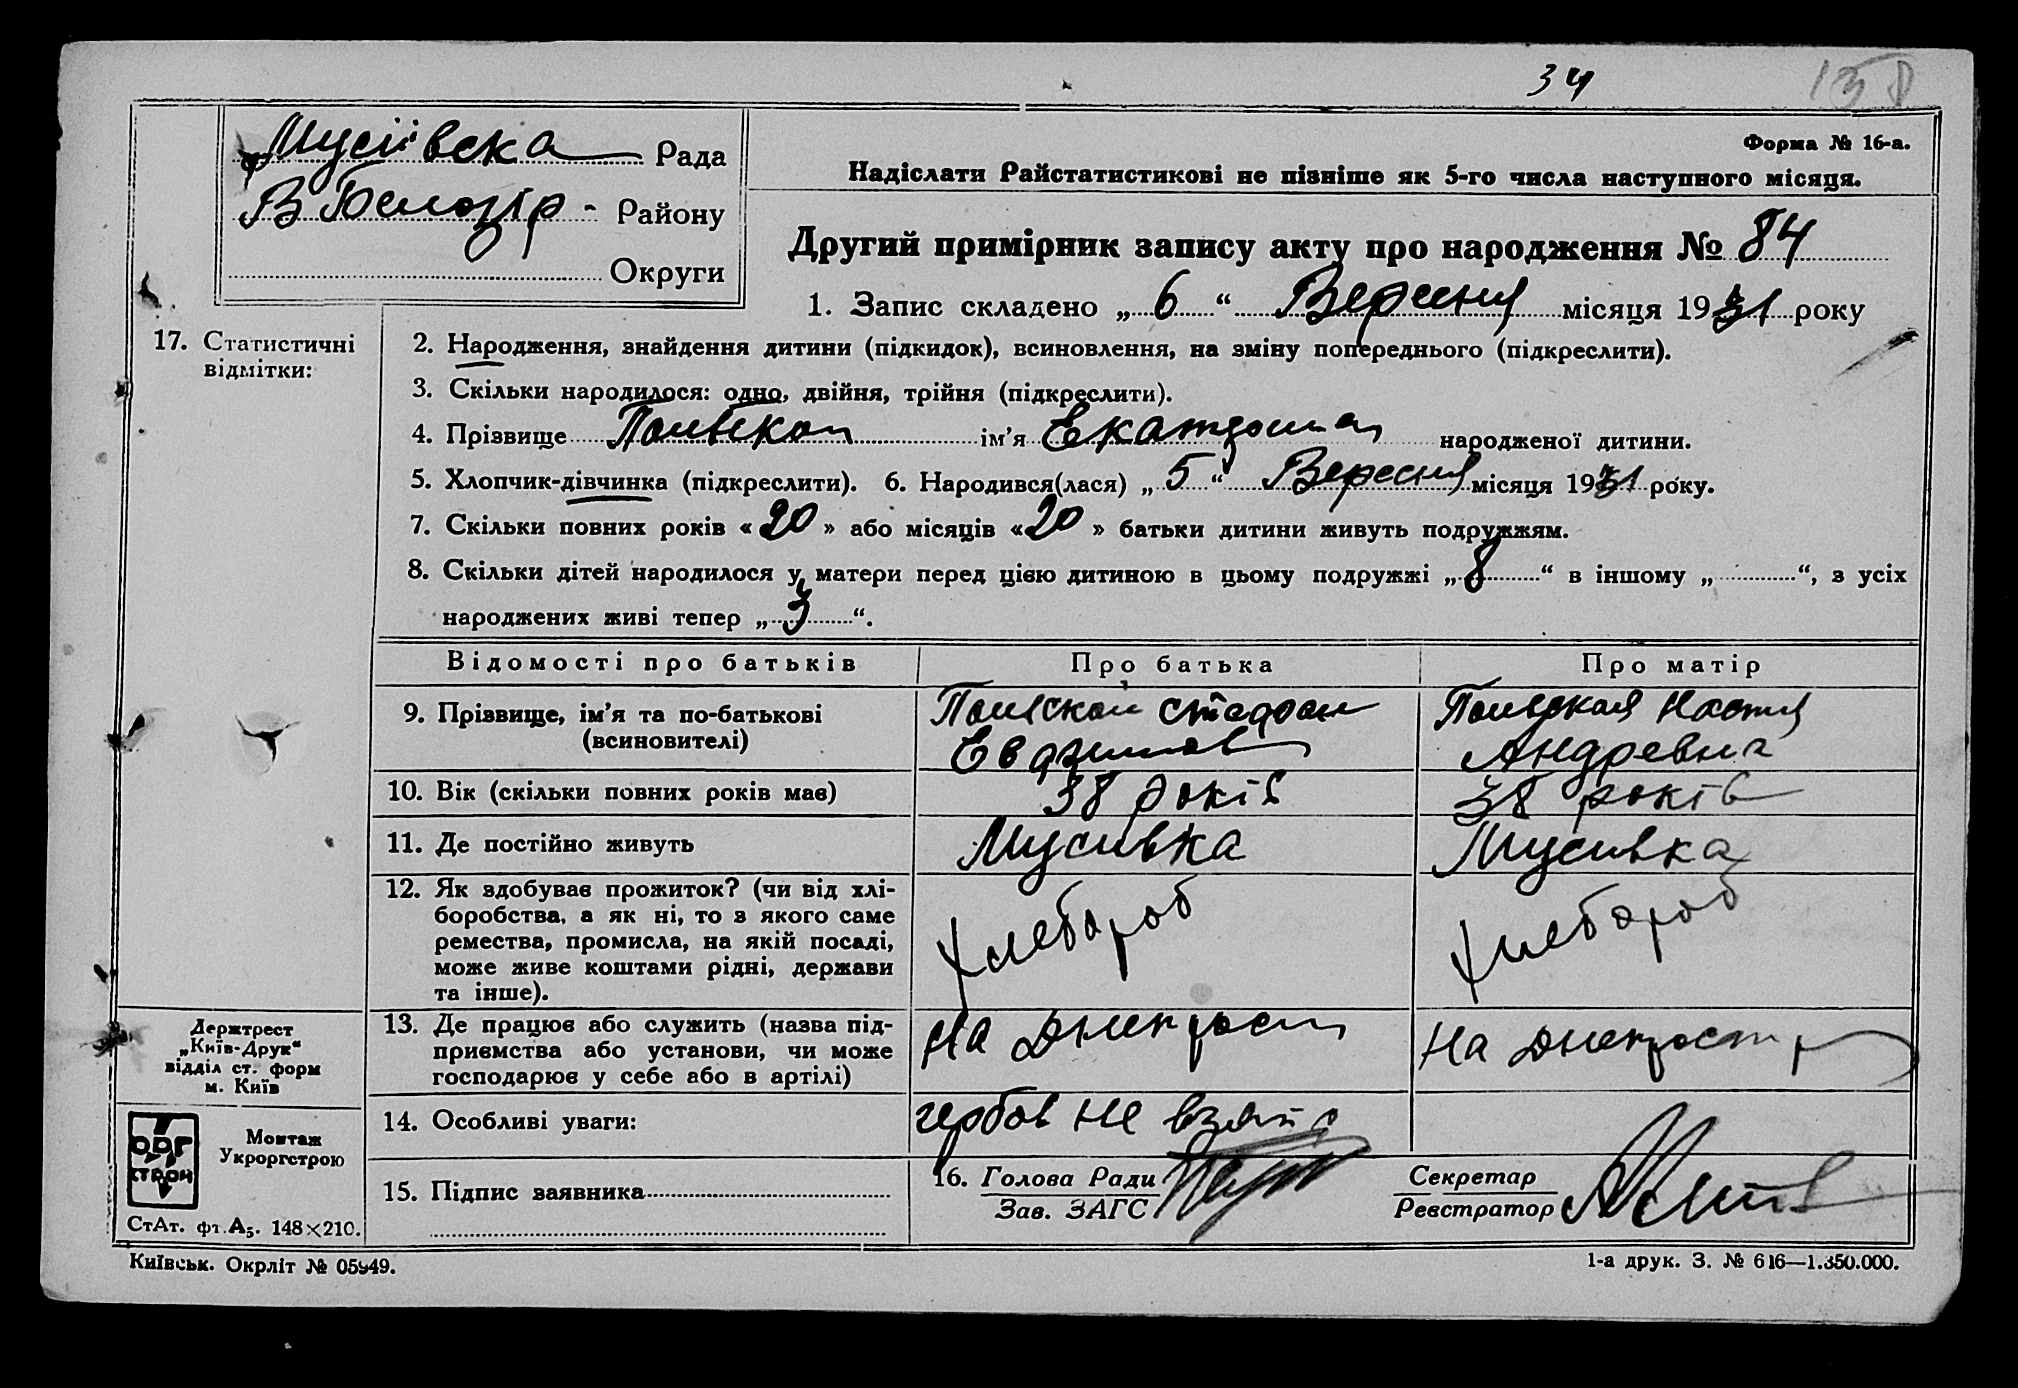 34 158
Мусіївска Рада
В Білозір - Району
Округи
Форма № 16-а.
Надіслати Райстатистикові не пізніше як 5-го числа наступного місяця.
Другий примірник запису акту про народження № 84
1. Запис складено „ 6 “ Вересня місяця 1931 року
17. Статистичні
відмітки:
2. Народження, знайдення дитини (підкидок), всиновлення, на зміну попереднього (підкреслити).
3. Скільки народилося: одно, двійня, трійня (підкреслити).
4. Прізвище ім’я народженої дитини.
5. Хлопчик-дівчинка (підкреслити). 6. Народився(лася) „ 5 “ Вересня місяця 1931 року.
7. Скільки повних років « 20 » або місяців « 20 » батьки дитини живуть подружжям.
8. Скільки дітей народилося у матери перед цією дитиною в цьому подружжі „ 8 “ в іншому „ “, з усіх
народжених живі тепер „ 3 “.
Відомості про батьків Про батька Про матір
9. Прізвище, ім’я та по-батькові
(всиновителі)
Стефан
Настя
Андревна
10. Вік (скільки повних років має) 38 років 38 років
11. Де постійно живуть Мусивка Мусивка
12. Як здобуває прожиток? (чи від хлі-
боробства, а як ні, то з якого саме
ремества, промисла, на якій посаді,
може живе коштами рідні, держави
та інше).
Хлебороб Хлебороб
13. Де працює або служить (назва під-
приємства або установи, чи може
господарює у себе або в артілі)
На Днепрост На Днепростр
14. Особливі уваги: гербов не взято
15. Підпис заявника
16. Голова Ради
Зав. ЗАГС
Секретар
Реєстратор
Держтрест
„Київ-Друк“
відділ ст. форм
м. Київ
ОРГ
СТРОЙ
Монтаж
Укроргстрою
СтАт. фт. А5. 148×210.
Київськ. Окрліт № 05949.
1-а друк. З. № 616—1.350.000.